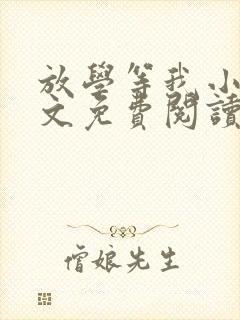 放學等我小
文免費閱讀
僧娘先生